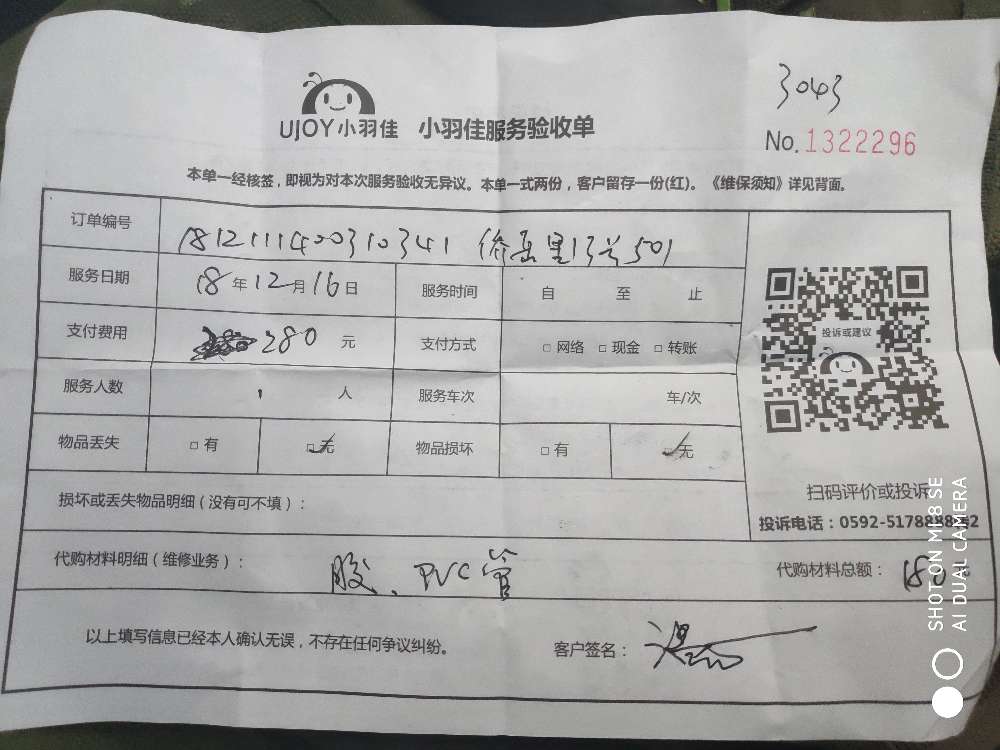 3043
UJOY小羽佳 小羽佳服务验收单
No.1322296
本单一经核签，即视为对本次服务验收无异议。本单一式两份，客户留存一份(红)。《维保须知》详见背面。
订单编号 1812111400310341 13号501
服务日期 18年12月16日 服务时间 自 至 止
支付费用 280元 支付方式 □网络 □现金 □转账
投诉或建议
服务人数 1人 服务车次 车/次
物品丢失 □有 □无 物品损坏 □有 □无
扫码评价或投诉
损坏或丢失物品明细（没有可不填）：
投诉电话：0592-517888
代购材料明细（维修业务）： 胶、PVC管 代购材料总额：
以上填写信息已经本人确认无误，不存在任何争议纠纷。 客户签名：
SHOT ON MI 8 SE
AI DUAL CAMERA